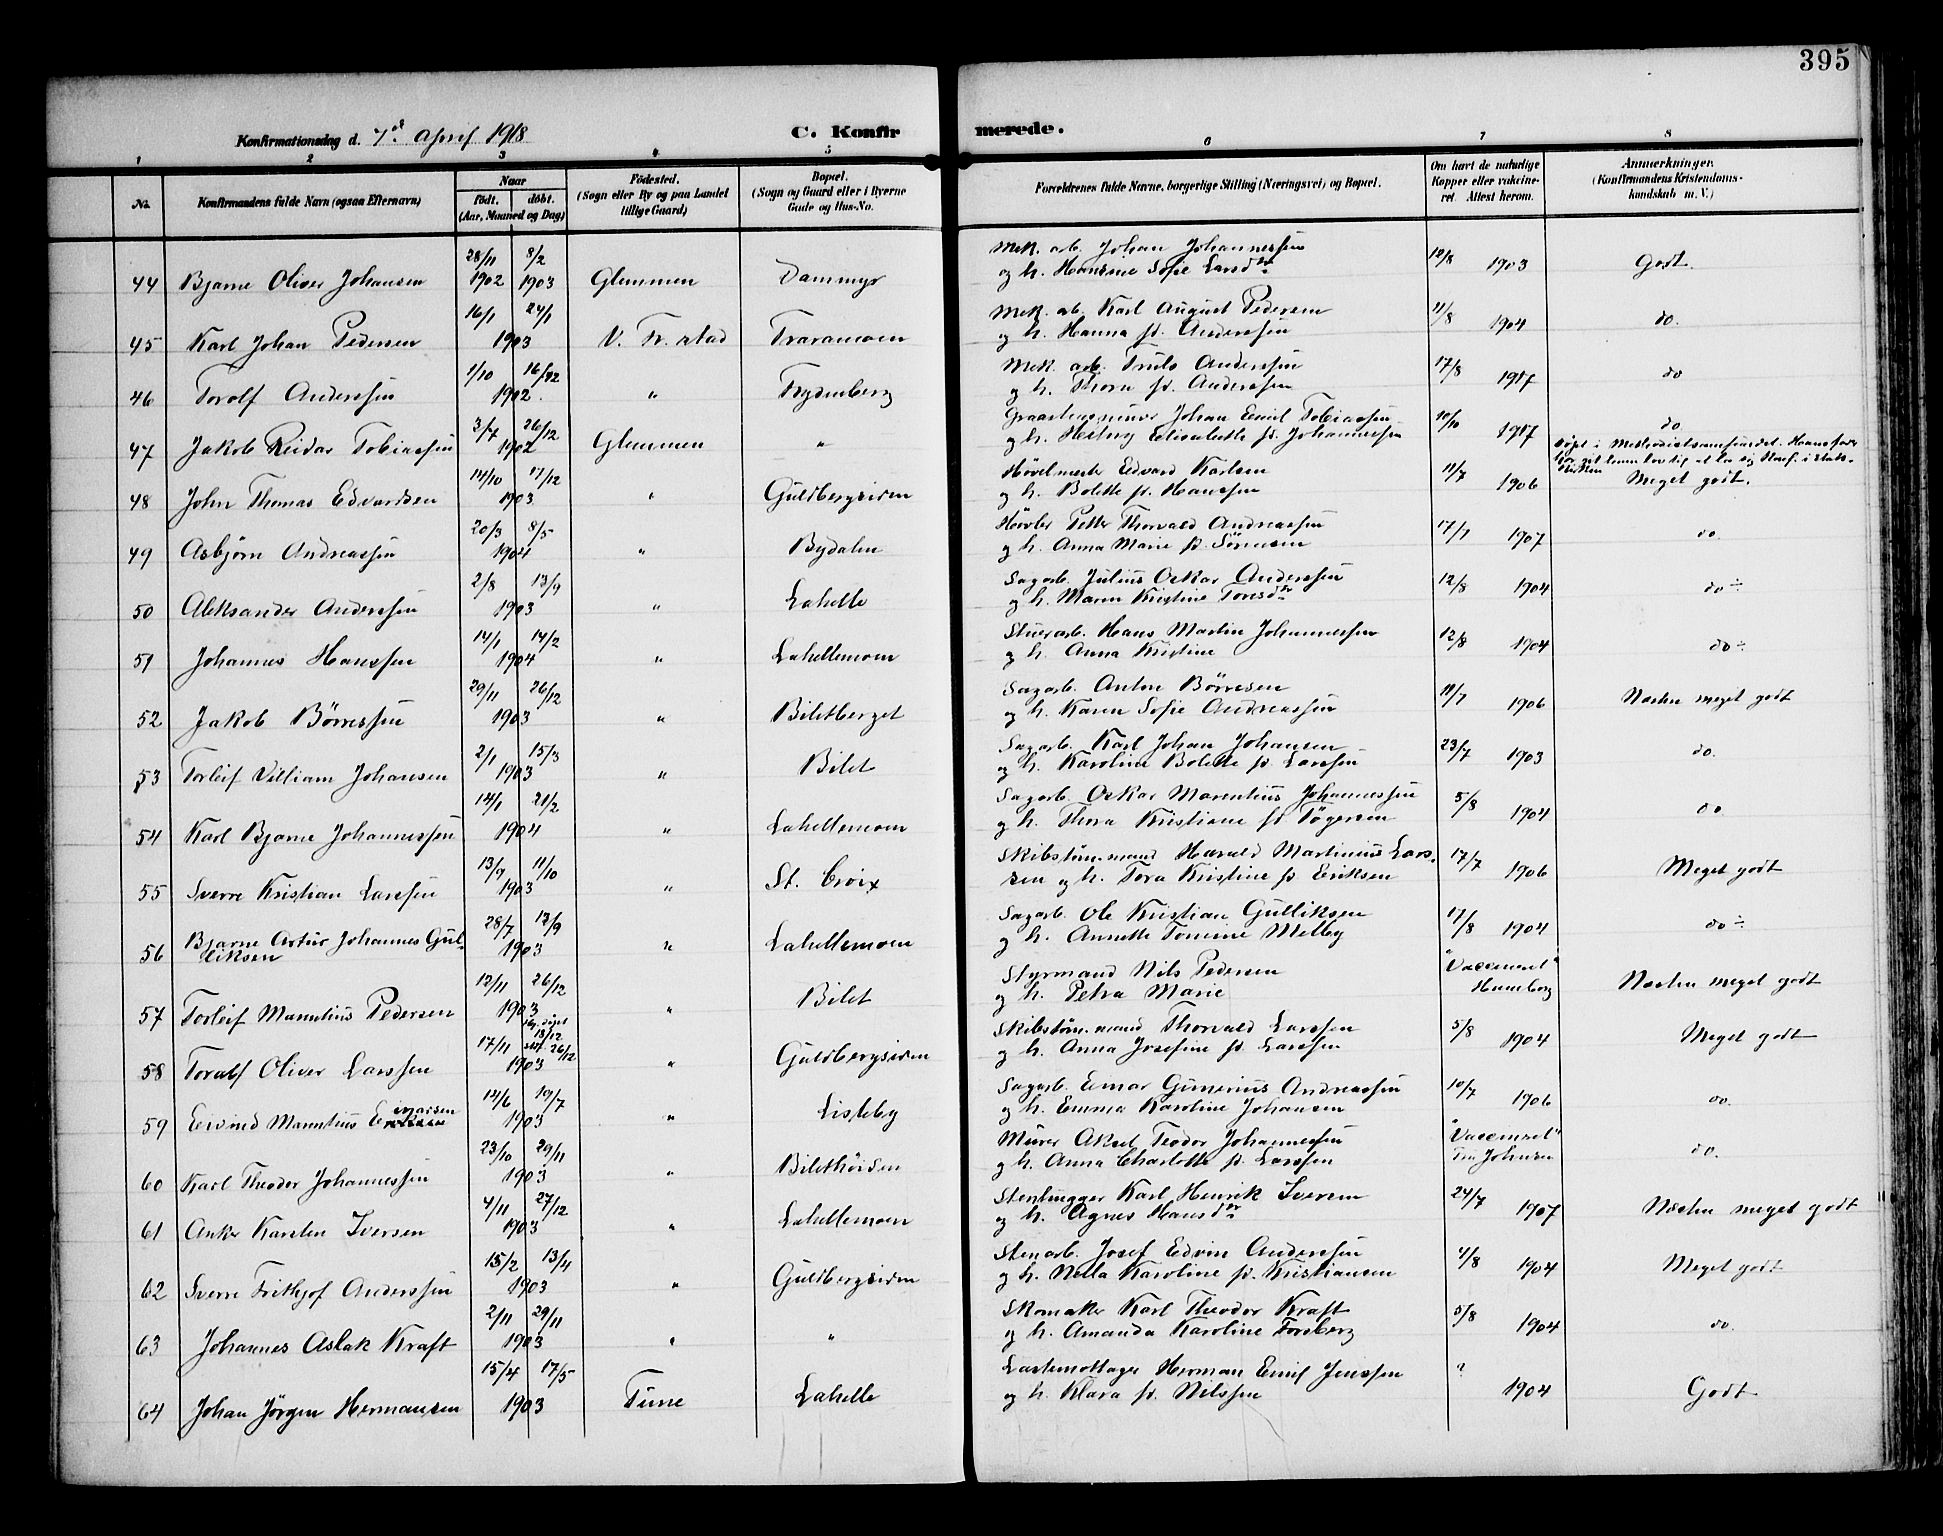 395
Konfirmationsdag d. 7de April 1918
C. Konfir merede.
1 2 3 4 5 6 7 8
No. Konfirmandens fulde Navn (ogsaa Efternavn) Naar født. døbt. (Aar, Maaned og Dag) Fødested. (Sogn eller By og paa Landet tillige Gaard) Bopæl. (Sogn og Gaard eller i Byerne Gade og Hus-No. Forældrenes fulde Navne, borgerlige Stilling (Næringsvei) og Bopæl. Om havt de naturlige Kopper eller vakcineret. Attest herom. Anmærkninger. (Konfirmandens Kristendomskundskab m. V.)
28/11 8/2 Mek. arb. Johan Johannessen 12/8
44 Bjarne Oliver Johansen 1902 1903 Glemmen Dammyr og h. Hansine Sofie Larsdtr 1903 Godt.
16/1 24/1 Mek. ab. Karl August Pedersen 11/8
45 Karl Johan Pedersen 1903 V. Fr. stad Traramoen og h. Hanna f. Anderssen 1904 do.
1/10 16/12 Mek. arb. Truls Anderssen 17/8
46 Torolf Anderssen 1902. " Frydenberg og h. Thora f. Anderssen 1917 do
3/7 26/12 Johan Emil Tobiassen 10/10
47 Jakob Reidar Tobiassen 1902 Glemmen " og h. Elisabeth f. Johannessen 1917 do
døpt i Methodistsamfundet. Hans far
har git ham lov til at la sig konf. i stats-
kirken
14/10 17/12 Høvelmester Edvard Karlsen 11/7
48 John Thomas Edvardsen 1903 " Guldbergsiden og h. Bolette f. Hanssen 1906 Meget godt.
20/3 8/5 Høvler Petter Thorvald Andreassen 17/7
49 Asbjørn Andreassen 1904 " Bydalen og h. Anna Marie f. Sørensen 1907 do
2/8 13/9 Sagarb. Julius Oskar Anderssen 12/8
50 Aleksander Anderssen 1903 " Lahelle og h. Maren Kristine Toresdtr 1904 do ÷
14/1 14/2 Stuerarb. Hans Martin Johannessen 12/8
51 Johannes Hanssen 1904 " Lahellemoen og h. Anna Kristine 1904 do ÷
29/11 26/12 Sagarb. Anton Børresen 11/7
52 Jakob Børressen 1903 " Biletberget og h. Karen Sofie Andreassen 1906 Næsten meget godt
2/1 15/3 Sagarb. Karl Johan Johansen 23/7
53 Torleif Villiam Johansen 1903 " Bilet og h. Karoline Bolette f. Larssen 1903 do.
14/1 21/2 Sagarb. Oskar Marentius Johannessen 5/8
54 Karl Bjarne Johannessen 1904 " Lahellemoen og h. Thora Kristiane f. Tøgersen 1904 do
13/9 11/10 Skibstøm.mand Harald Martinius Lars- 17/7
55 Sverre Kristian Larssen 1903 " St. Croix sen og h. Tora Kristine f. Eriksen 1906 Meget godt
28/7 12/9 Sagarb. Ole Kristian Gulliksen 17/8
56 Bjarne Artur Johannes Gul-
liksen 1903 " Lahellemoen og h. Annette Tomine Melby 1904 do ÷
12/11 26/12 Styrmand Nils Pedersen "Vaccineret"
57 Torleif Manntius Pedersen 1903 " Bilet og h. Petra Marie Næsten meget godt
17/11 døpt 13/12 26/12 Skibstøm.mand Thorvald Larssen 5/8
58 Toralf Oliver Larssen 1903 " Guldbergsiden og h. Anna Josefine f. Larssen 1904 Meget godt
14/6 19/7 Sagarb. Einar Gunerius Andreassen 10/7
59 Eivind Manntius Einarsen 1903 " Lisleby og h. Emma Karoline Johansen 1906 do.
23/10 29/11 Murer Aksel Teodor Johannessen "Vaccineret"
60 Karl Theodor Johannessen 1903 " og h. Anna Charlotte f. Larssen Johnsen do.
4/11 27/12 Stenhugger Karl Henrik Iversen 24/7
61 Anker Karsten Iversen 1903 " Lahellemoen og h. Agnes Hansdtr 1907 Næsten meget godt
15/2 13/4 Stenarb. Josef Edvin Anderssen 4/8
62 Sverre Frithjof Anderssen 1903 " Guldbergsiden og h. Nella Karoline f. Kristiansen 1904 Meget godt
2/11 29/11 Skomaker Karl Theodor Kraft 5/8
63 Johannes Aslak Kraft 1903 " " og h. Amanda Karoline Forsberg 1904 do.
15/4 17/5 Lastemottager Herman Emil Jenssen ?
64 Johan Jørgen Hermansen 1903 Tune Lahelle og h. Klara f. Nilssen 1904 Godt